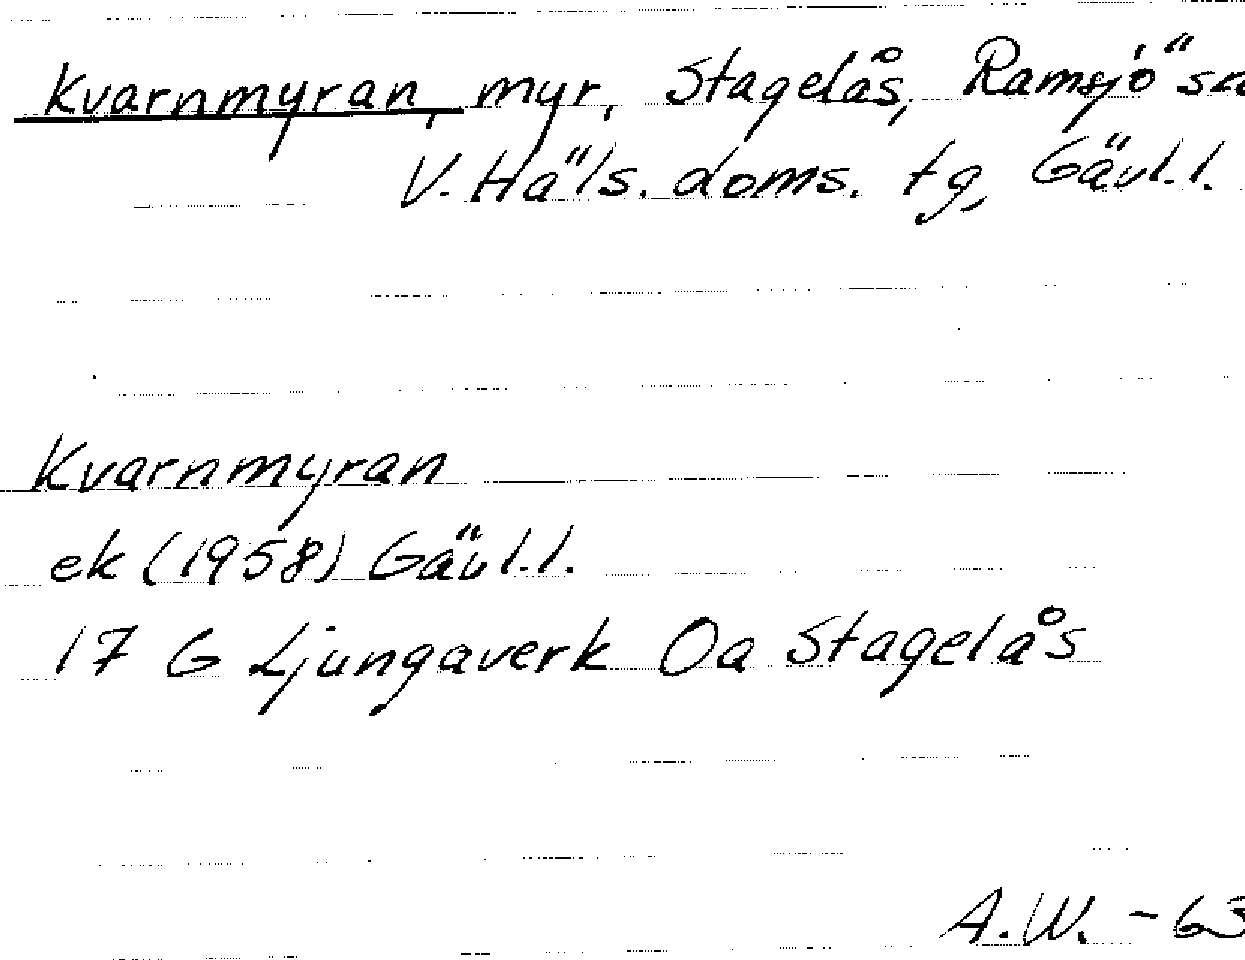 Kvarnmyran, myr, Stagelås, Ramsjö sn
V. Häls. doms. tg, Gävl.l.
Kvarnmyran
ek (1958) Gävl.l.
17 G Ljungaverk Oa Stagelås
A.W. -63